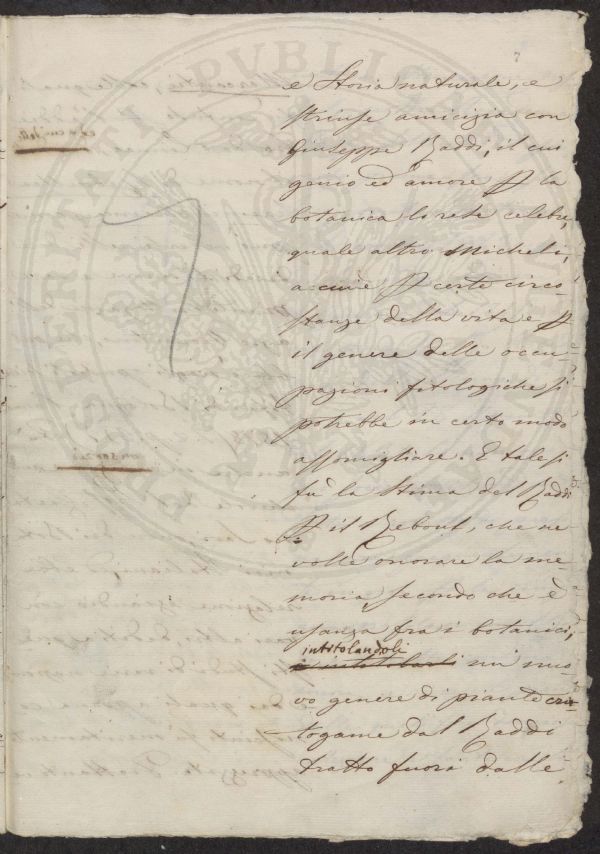 7
e Storia naturale, e
strinse amicizia con
Giuseppe Raddi, il cui
genio ed amore p la
botanica lo rese celebre,
quale altro Micheli,
a cui è p certe circo-
stanze della vita e p
il genere delle occu-
pazioni fitologiche si
potrebbe in certo modo
assomigliare. E tale si
fù la stima del Raddi
p il Rebout, che ne
volle onorare la me-
moria, secondo che è
usanza fra i botanici,
intitolandoli
e intitolarli un nuo-
vo genere di piante crit-
togame dal Raddi
tratto fuori dalle
7